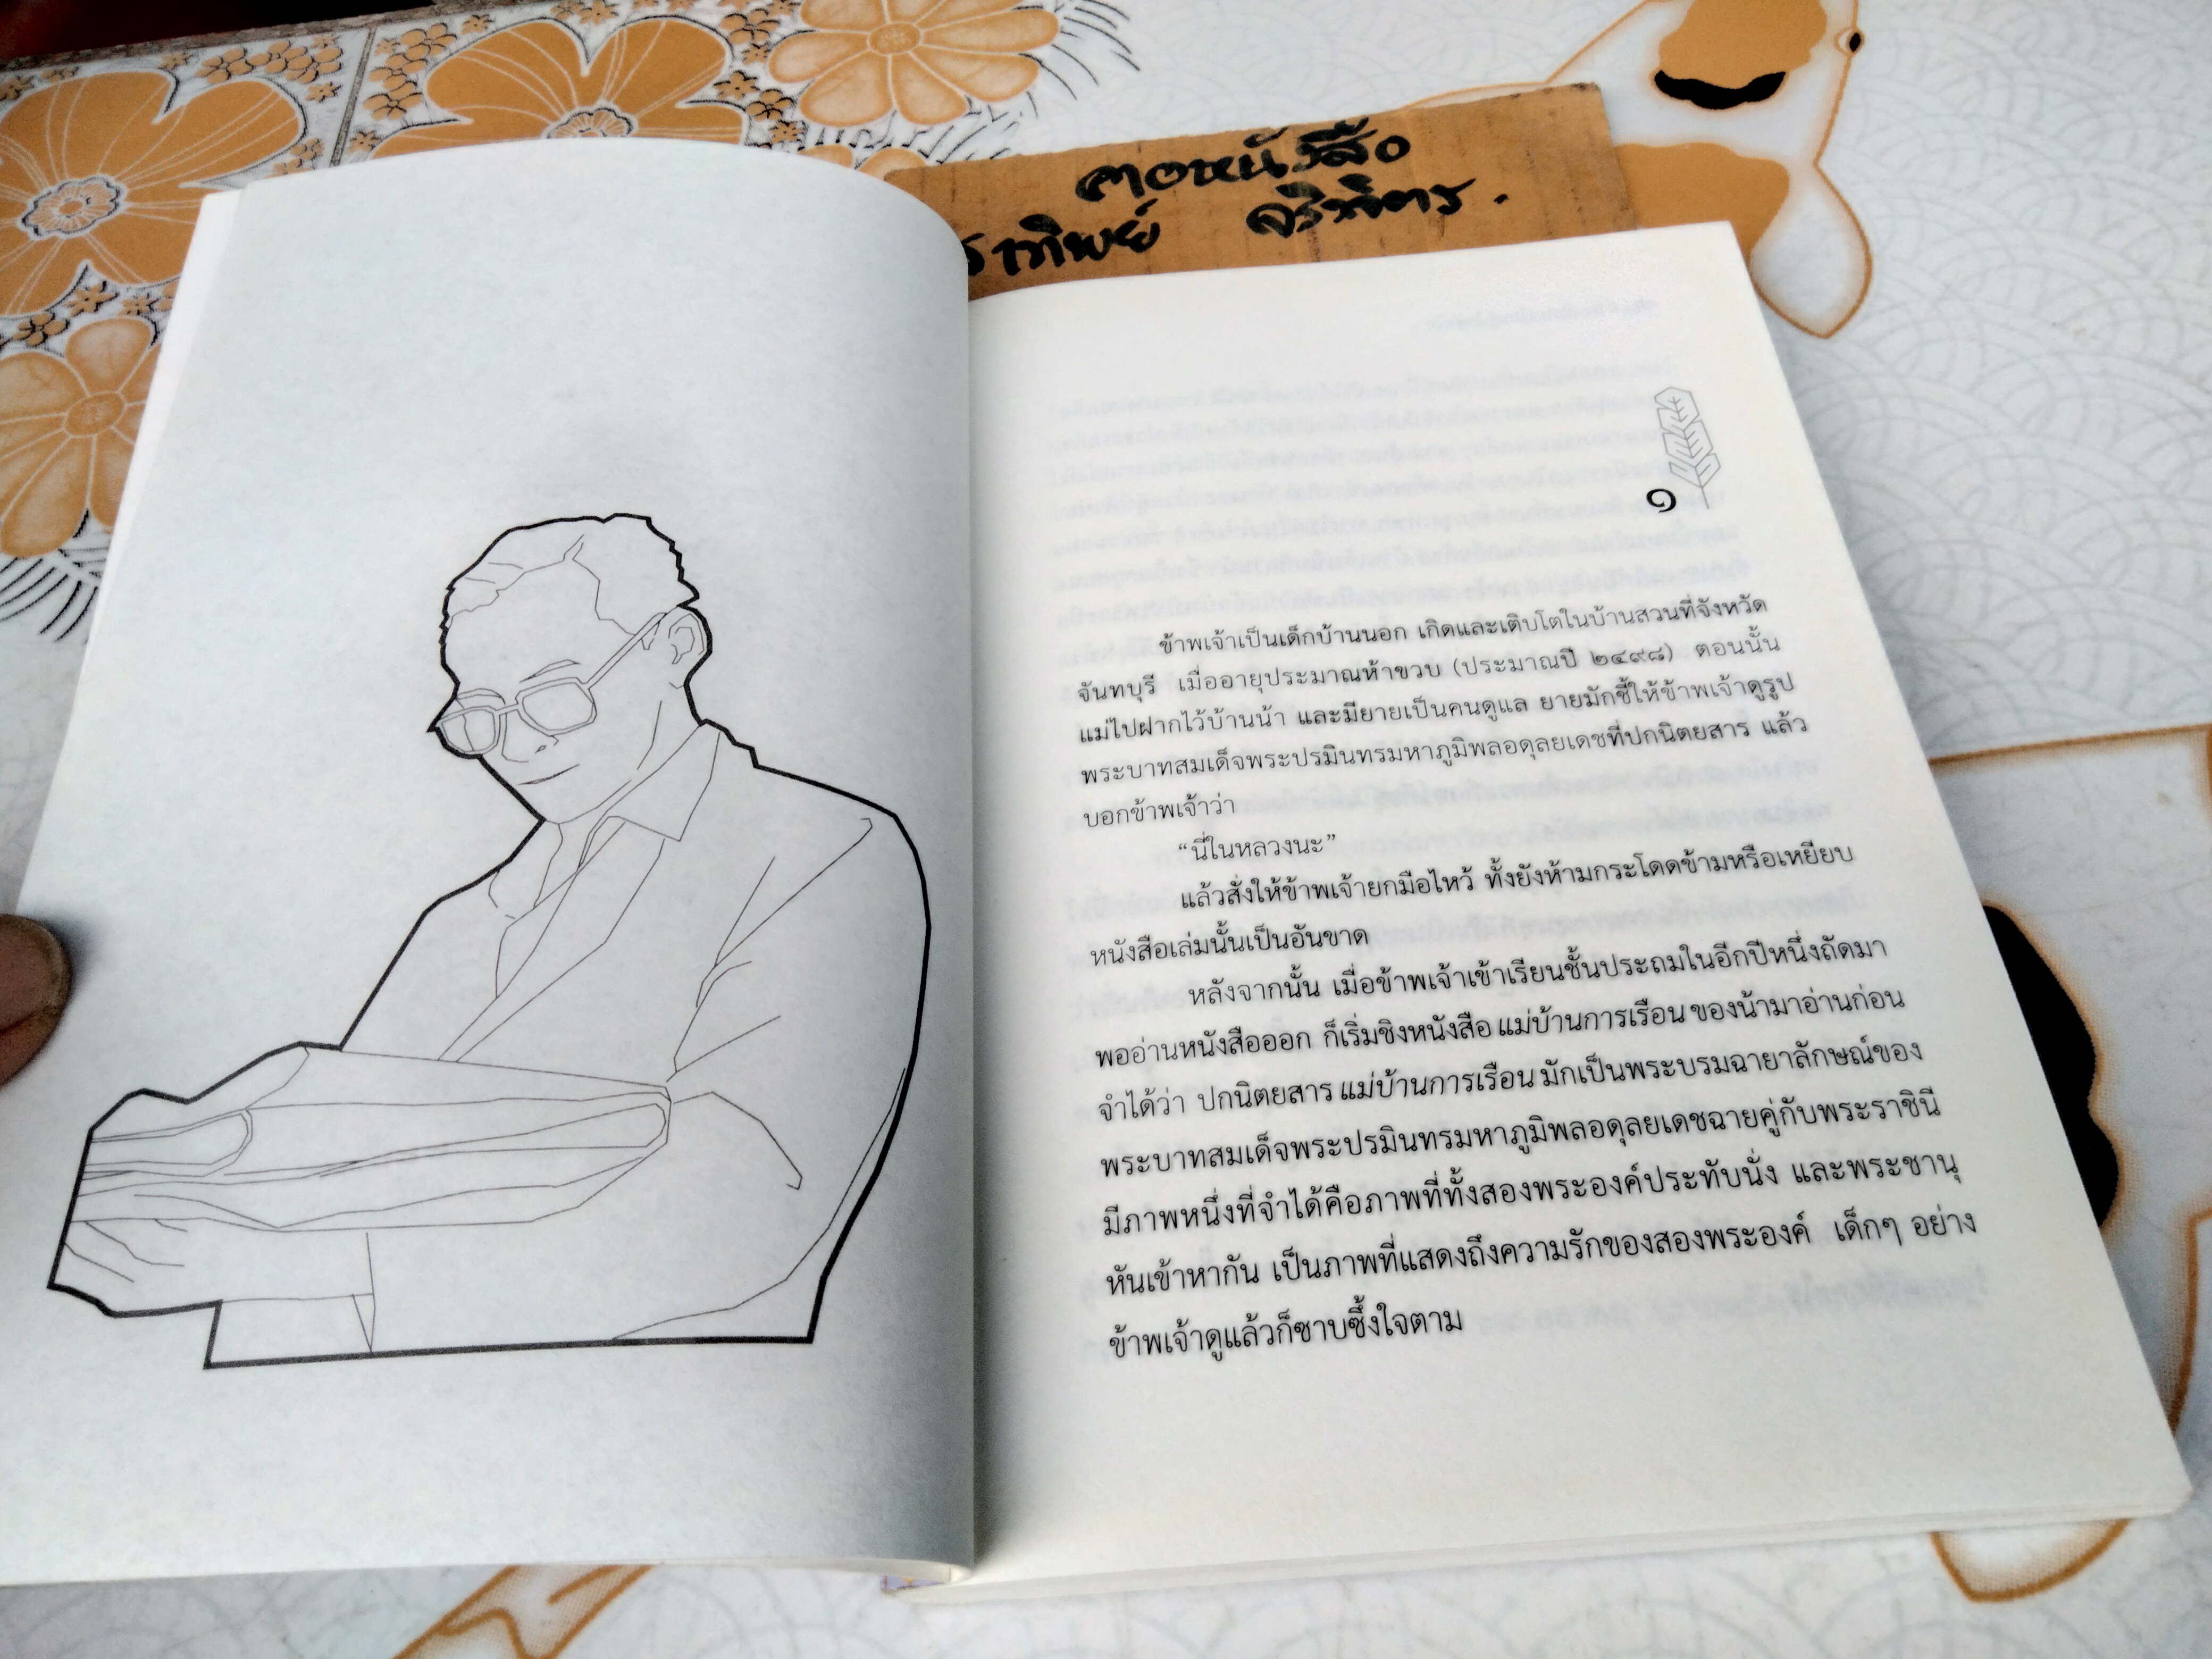 คอหนังสือ
ราทิพย์ จริพิตร.
๑
ข้าพเจ้าเป็นเด็กบ้านนอก เกิดและเติบโตในบ้านสวนที่จังหวัด
จันทบุรี เมื่ออายุประมาณห้าขวบ (ประมาณปี ๒๔๙๘) ตอนนั้น
แม่ไปฝากไว้บ้านน้า และมียายเป็นคนดูแล ยายมักชี้ให้ข้าพเจ้าดูรูป
พระบาทสมเด็จพระปรมินทรมหาภูมิพลอดุลยเดชที่ปกนิตยสาร แล้ว
บอกข้าพเจ้าว่า
“นี่ในหลวงนะ”
แล้วสั่งให้ข้าพเจ้ายกมือไหว้ ทั้งยังห้ามกระโดดข้ามหรือเหยียบ
หนังสือเล่มนั้นเป็นอันขาด
หลังจากนั้น เมื่อข้าพเจ้าเข้าเรียนชั้นประถมในอีกปีหนึ่งถัดมา
พออ่านหนังสือออก ก็เริ่มชิงหนังสือ แม่บ้านการเรือน ของน้ามาอ่านก่อน
จำได้ว่า ปกนิตยสาร แม่บ้านการเรือน มักเป็นพระบรมฉายาลักษณ์ของ
พระบาทสมเด็จพระปรมินทรมหาภูมิพลอดุลยเดชฉายคู่กับพระราชินี
มีภาพหนึ่งที่จำได้คือภาพที่ทั้งสองพระองค์ประทับนั่ง และพระชานุ
หันเข้าหากัน เป็นภาพที่แสดงถึงความรักของสองพระองค์ เด็กๆ อย่าง
ข้าพเจ้าดูแล้วก็ซาบซึ้งใจตาม